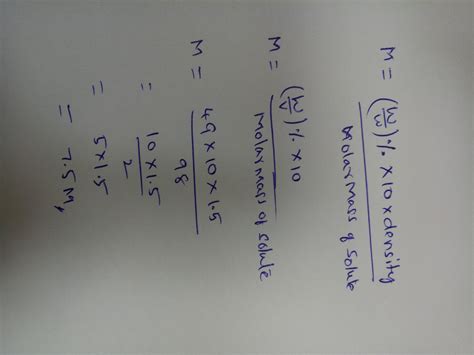 M = (w/w)% x 10 x density / molar mass of solute
M = (w/v)% x 10 / molar mass of solute
M = 49 x 10 x 1.5 / 98
= 10 x 1.5 / 2
= 5 x 1.5
= 7.5 M,